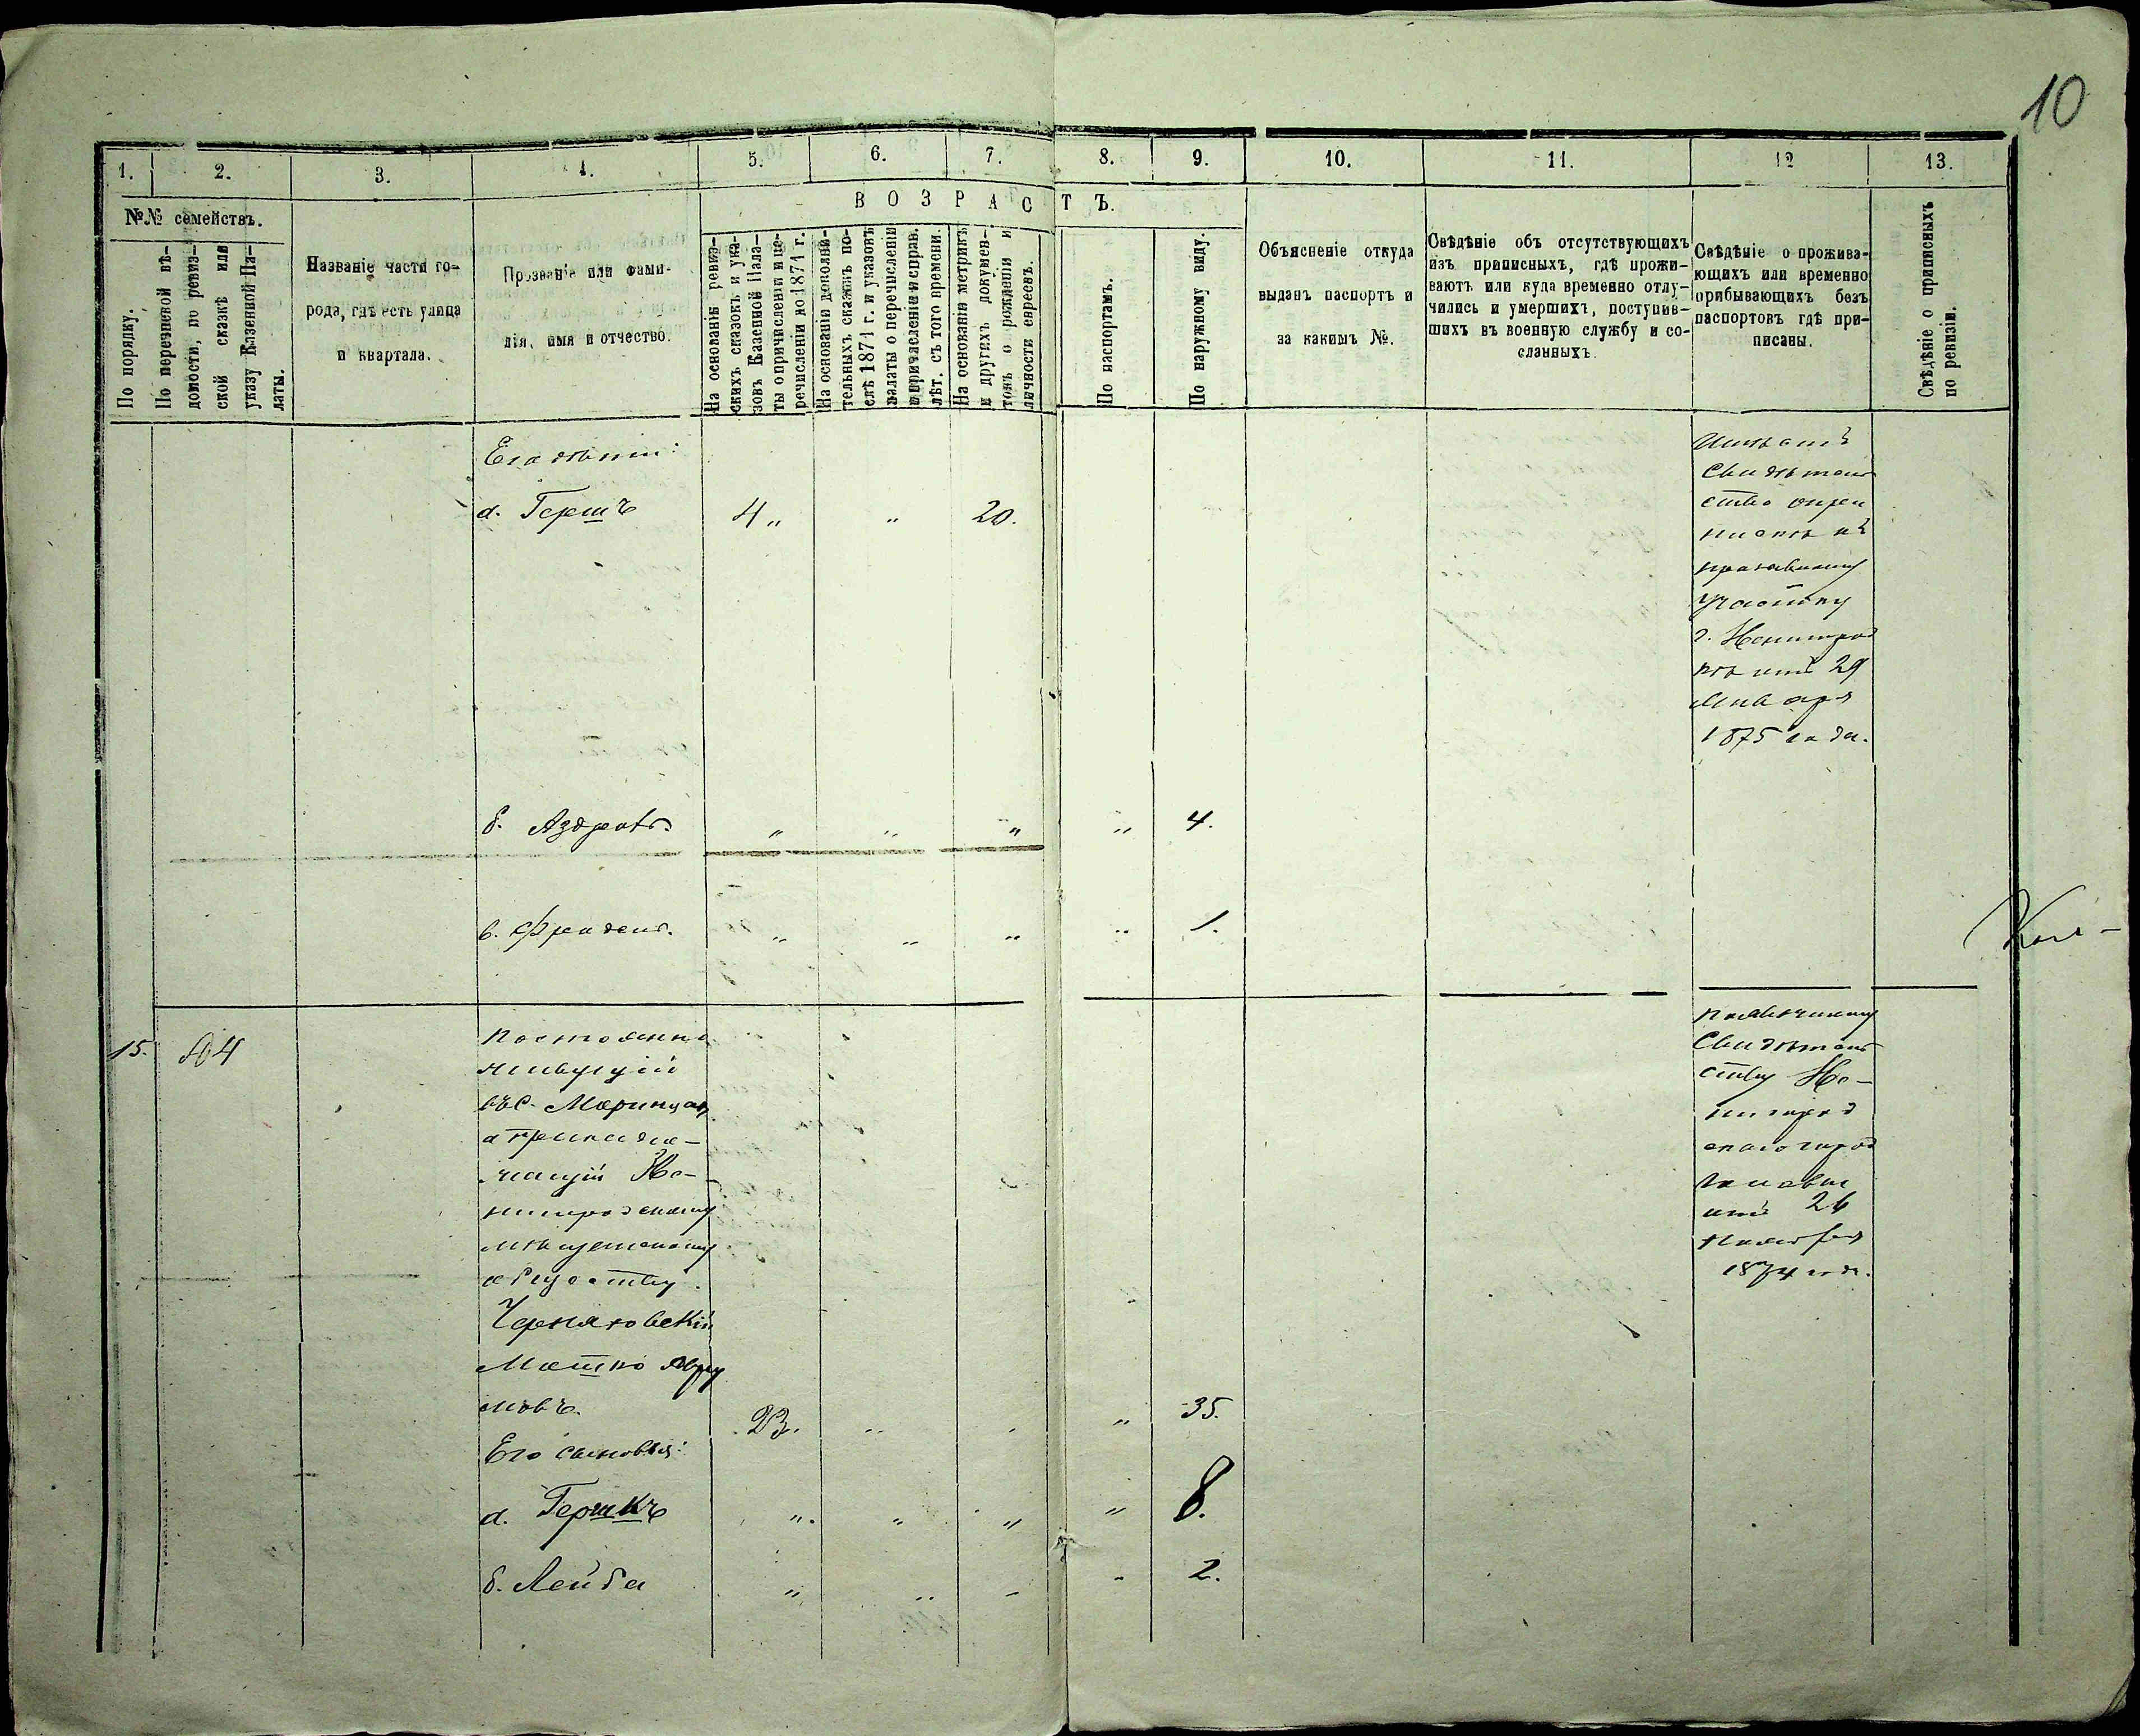 10
1. 2. 3. 4. 5. 6. 7. 8. 9. 10. 11. 12 13.
№№ семействъ.
По порядку.
По перечневой вѣ-
домости, по ревиз-
ской сказкѣ или
указу Казенной Па-
латы.
Названіе части го-
рода, гдѣ есть улица
и квартала.
Прозваніе или фами-
лія, имя и отчество.
ВОЗРАСТЪ.
На основаніи ревиз-
скихъ сказокъ и ука-
зовъ Казенной Пала-
ты о причисленіи и пе-
речисленіи до 1871 г.
На основаніи дополни-
тельныхъ сказокъ по-
слѣ 1871 г. и указовъ
палаты о перечисленіи
и причисленіе и справ.
лѣт. съ того времени.
На основаніи метрикъ
и другихъ докумен-
товъ о рожденіи и
личности евреевъ.
По паспортамъ.
По наружному виду.
Объясненіе откуда
выданъ паспортъ и
за какимъ №.
Свѣдѣніе объ отсутствующихъ
изъ приписныхъ, гдѣ прожи-
ваютъ или куда временно отлу-
чились и умершихъ, поступив-
шихъ въ военную службу и со-
сланныхъ.
Свѣдѣніе о прожива-
ющихъ или временно
прибывающихъ безъ
паспортовъ гдѣ при-
писаны.
Свѣдѣніе о приписныхъ
по ревизіи.
Его дѣти:
а. Гершъ 4 „ „ 20.
Имѣетъ
Свидѣтель
ство о при
пискѣ къ
призывному
участку
г. Звенигород
кѣ отъ 29
Января
1875 года.
б. „ „ „ „ 4.
в. „ „ „ „ 1.
15. 64
Постоянно
живущій
въ с. Моринцах
а принадле-
жащій Зве-
нигородскому
мѣщанскому
обществу
Черняховскій
Мошко Абру
мовъ. 23. „ „ „ 35.
Его сыновья:
а. Гершкъ „ „ „ „ 8.
б. Лейба „ „ „ „ 2.
Свидѣтель
ству Зве-
нигород
скаго город
отъ 26
Ноября
1874 года.